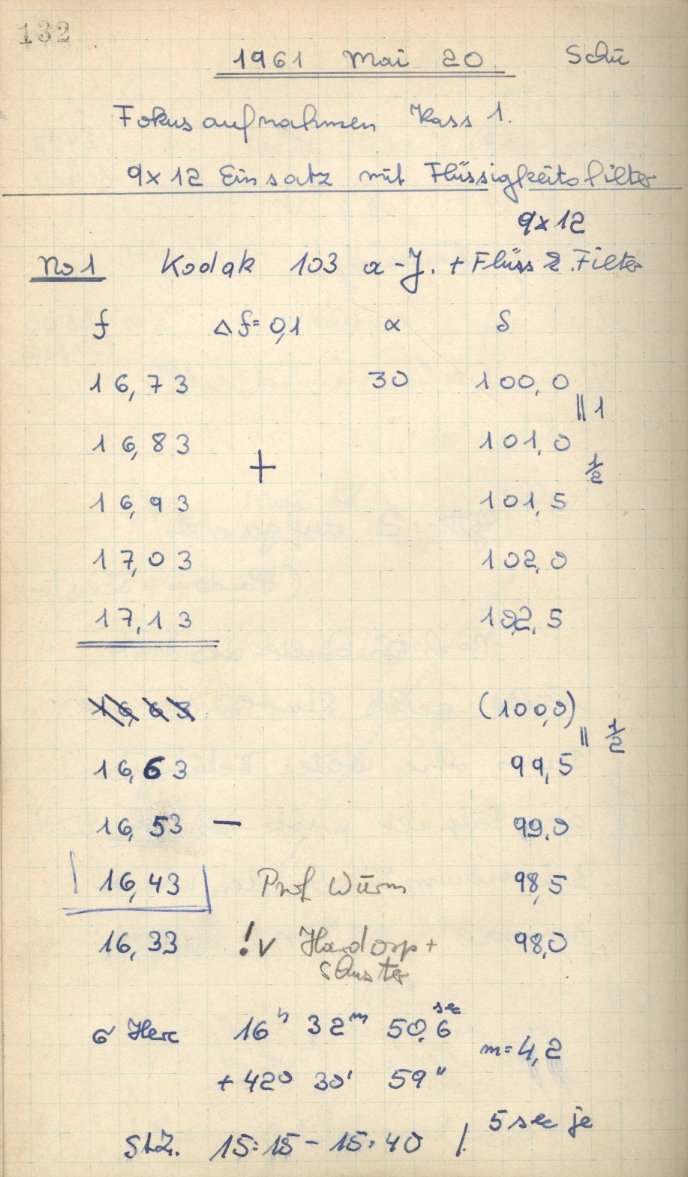 132
1961 Mai 20 Schü
Fokusaufnahmen Kass 1.
9x12 Einsatz mit Flüssigkeitsfilter
9x12
No 1 Kodak 103 a-J. + Flüss 2. Filter
f Δf=0,1 α δ
16,73 30 100,0
|| 1
16,83 101,0
+ 1/2
16,93 101,5
17,03 102,0
17,13 102,5
16,63 (100,0)
|| 1/2
16,63 99,5
16,53 — 99,0
16,43 Prof Wurm 98,5
16,33 !v Hardorp + 98,0
Schuster
σ Herc 16h 32m 50,6sec m=4,2
+42° 30' 59"
5 sec je
St.Z. 15:15 - 15:40 /.